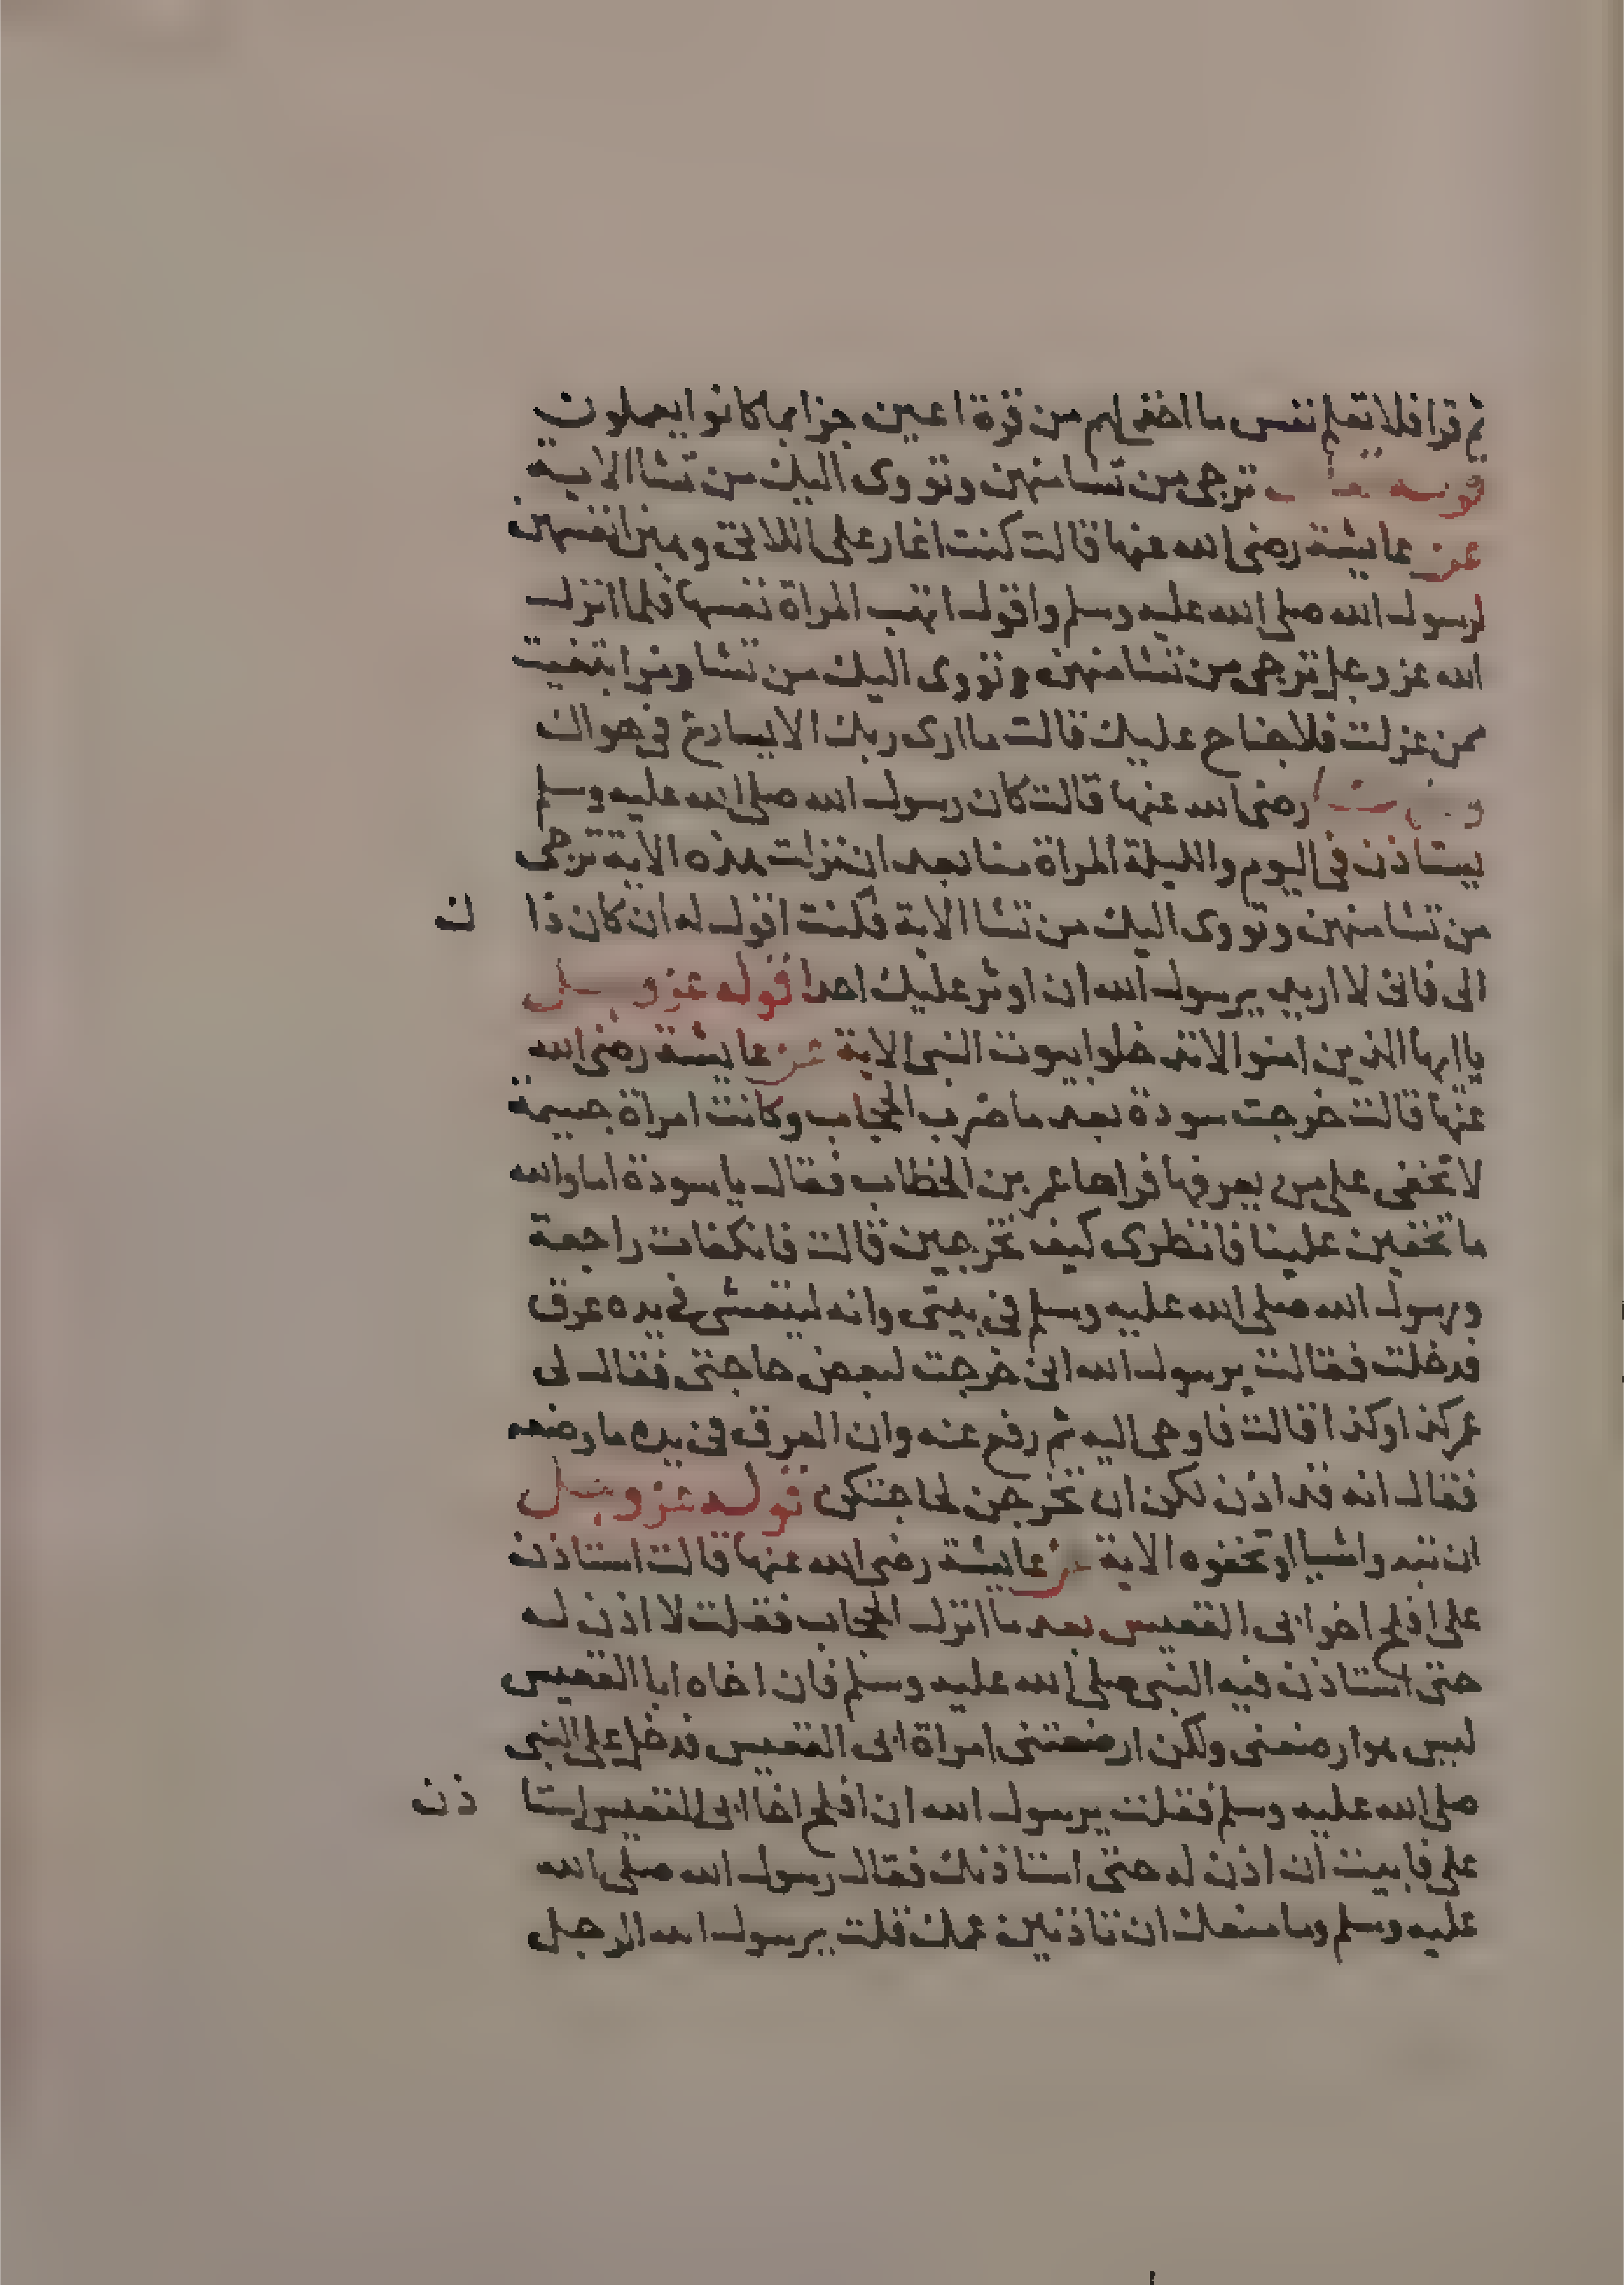 ثم قرا فلا تعلم نفس ما اخفى لهم من قرة اعين جزا بما كانوا يعملون
قوله ترجى من تشا منهن وتووى اليك من تشا الاية
عن عايشة رضى الله عنها قالت كنت اغار على اللاتى وهبن انفسهن
لرسول الله صلى الله عليه وسلم واقول اتهب المراة نفسها فلما انزل
الله عز وجل ترجى من تشا منهن وتووى اليك من تشا ومن ابتغيت
ممن عزلت فلا جناح عليك قالت ما ارى ربك الا يسارع فى هواك
رضى الله عنها قالت كان رسول الله صلى الله عليه وسلم
يستاذن فى اليوم والليلة المراة منا بعد ان نزلت هذه الاية ترجى
من تشا منهن وتووى اليك من تشا الاية فكنت اقول له ان كان ذا ك
الى فانى لا اريد يرسول الله ان اوثر عليك احدا قوله عز وجل
يا ايها الذين امنوا لا تدخلوا بيوت النبى الاية عن عايشة رضى الله
عنها قالت خرجت سودة بعد ما ضرب الحجاب وكانت امراة جسيمة
لا تخفى على من يعرفها فراها عمر بن الخطاب فقال يا سودة اما والله
ما تخفين علينا فانظرى كيف تخرجين قالت فانكفات راجعة
ورسول الله صلى الله عليه وسلم فى بيتى وانه ليتعشى فى يده عرق
فدخلت فقالت يرسول الله انى خرجت لبعض حاجتى فقال لى
عمر كذا وكذا قالت فاوحى اليه ثم رفع عنه وان العرق فى يده ما وضعه
فقال انه قد اذن لكن ان تخرجن لحاجتكن قوله عز وجل
ان تبدوا شيا او تخفوه الاية عن عايشة رضى الله عنها قالت استاذن
على افلح اخو ابى القعيس بعد ما انزل الحجاب فقلت لا اذن له
حتى استاذن فيه النبى صلى الله عليه وسلم فان اخاه ابا القعيس
ليس هو ارضعنى ولكن ارضعتنى امراة ابى القعيس فدخل على النبى
صلى الله عليه وسلم فقلت يرسول الله ان افلح اخا ابى القعيس استا ذن
على فابيت ان اذن له حتى استاذنك فقال رسول الله صلى الله
عليه وسلم وما منعك ان تاذنين عمك قلت يرسول الله الرجل